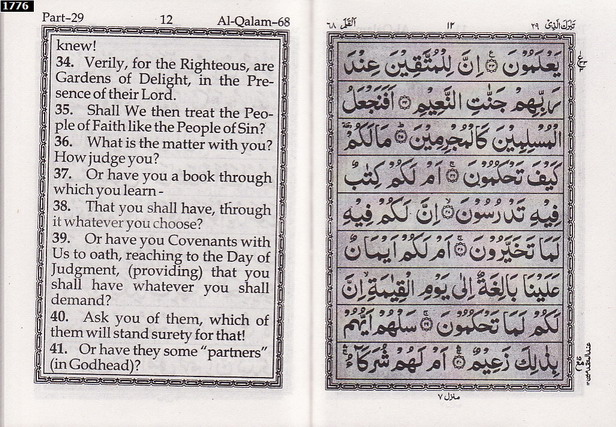 1776
Part-29 12 Al-Qalam-68
knew!
34. Verily, for the Righteous, are
Gardens of Delight, in the Pre-
sence of their Lord.
35. Shall We then treat the Peo-
ple of Faith like the People of Sin?
36. What is the matter with you?
How judge you?
37. Or have you a book through
which you learn -
38. That you shall have, through
it whatever you choose?
39. Or have you Covenants with
Us to oath, reaching to the Day of
Judgment, (providing) that you
shall have whatever you shall
demand?
40. Ask you of them, which of
them will stand surety for that!
41. Or have they some “partners”
(in Godhead)?
القلم ٦٨ ١٢ تبٰرك الذی ٢٩
يَعْلَمُوْنَ ۝٣٣ اِنَّ لِلْمُتَّقِيْنَ عِنْدَ
رَبِّهِمْ جَنّٰتِ النَّعِيْمِ ۝٣٤ اَفَنَجْعَلُ
الْمُسْلِمِيْنَ كَالْمُجْرِمِيْنَ ۝٣٥ مَا لَكُمْ
كَيْفَ تَحْكُمُوْنَ ۝٣٦ اَمْ لَكُمْ كِتٰبٌ
فِيْهِ تَدْرُسُوْنَ ۝٣٧ اِنَّ لَكُمْ فِيْهِ
لَمَا تَخَيَّرُوْنَ ۝٣٨ اَمْ لَكُمْ اَيْمَانٌ
عَلَيْنَا بَالِغَةٌ اِلٰى يَوْمِ الْقِيٰمَةِ اِنَّ
لَكُمْ لَمَا تَحْكُمُوْنَ ۝٣٩ سَلْهُمْ اَيُّهُمْ
بِذٰلِكَ زَعِيْمٌ ۝٤٠ اَمْ لَهُمْ شُرَكَآءُ
منزل ٧